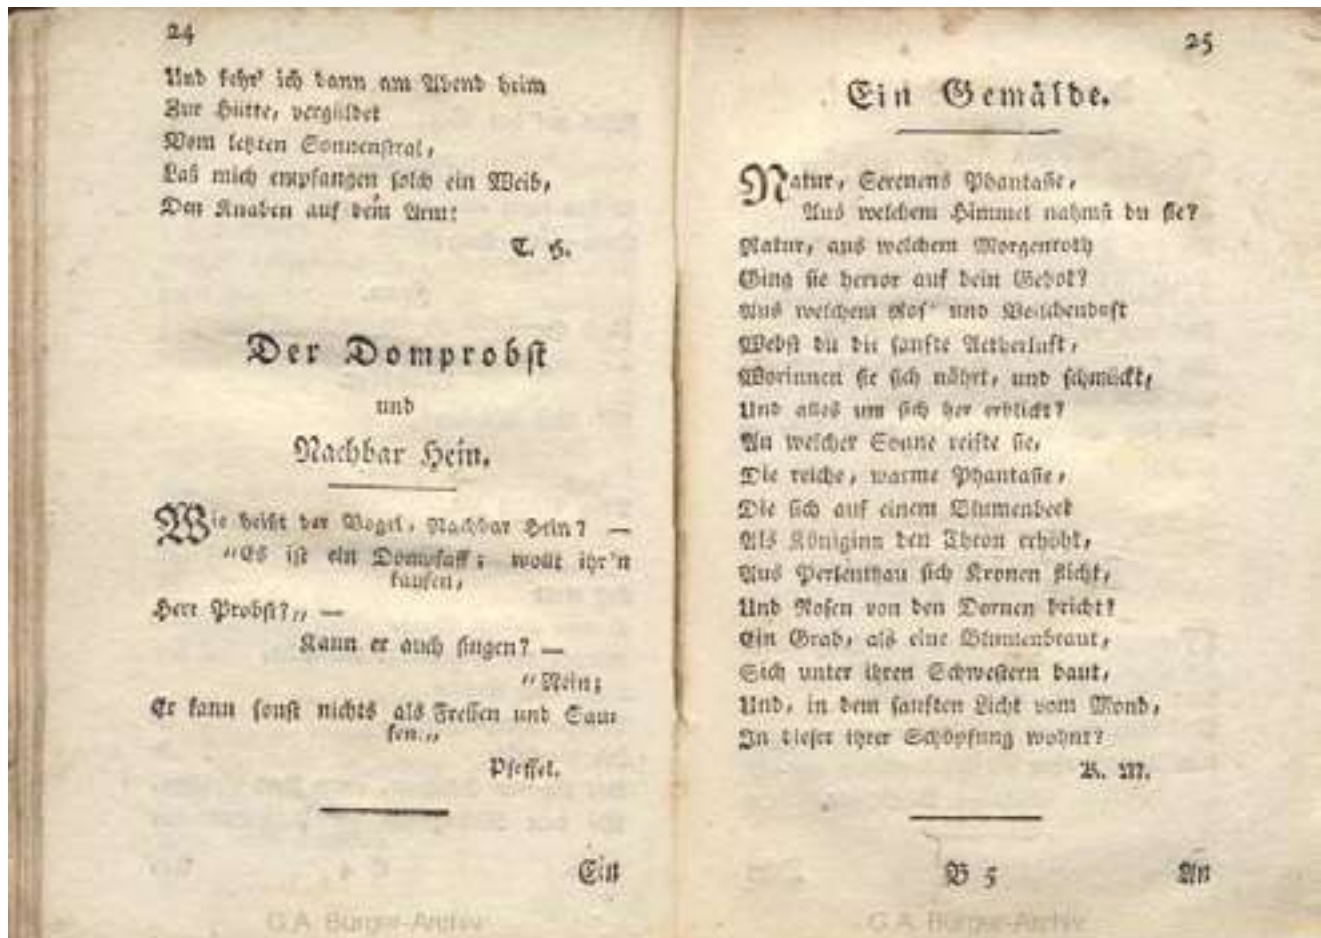 24
Und kehr' ich dann am Abend heim
Zur Hütte, vergüldet
Vom letzten Sonnenstral,
Laß mich empfangen solch ein Weib,
Den Knaben auf dem Arm!
T. H.
Der Domprobst
und
Nachbar Hein.
Wie heißt der Vogel, Nachbar Hein? —
"Es ist ein Dompfaff; wollt ihr'n
kaufen,
Herr Probst?„ —
Kann er auch singen? —
"Nein;
Er kann sonst nichts als Fressen und Sau-
fen.„
Pfeffel.
Ein
G.A. Bürger-Archiv
25
Ein Gemälde.
Natur, Serenens Phantasie,
Aus welchem Himmel nahmst du sie?
Natur, aus welchem Morgenroth
Ging sie hervor auf dein Gebot?
Aus welchem Ros' und Veilchenduft
Webst du die sanfte Aetherluft,
Worinnen sie sich nährt, und schmückt,
Und alles um sich her erblickt?
An welcher Sonne reifte sie,
Die reiche, warme Phantasie,
Die sich auf einem Blumenbeet
Als Königinn den Thron erhöht,
Aus Perlenthau sich Kronen flicht,
Und Rosen von den Dornen bricht?
Ein Grab, als eine Blumenbraut,
Sich unter ihren Schwestern baut,
Und, in dem sanften Licht vom Mond,
In dieser ihrer Schöpfung wohnt?
K. M.
B 5
An
G.A. Bürger-Archiv